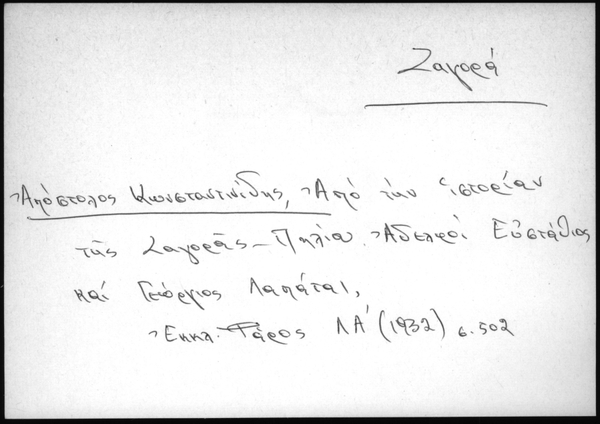 Ζαγορά
Ἀπόστολος Κωνσταντινίδης, Ἀπό τήν ἱστορίαν
τῆς Ζαγορᾶς - Πηλίου. Ἀδελφοί Εὐστάθιος
καί Γεώργιος Λαπάται,
Ἐκκλ. Φάρος ΛΑ' (1932) σ. 502